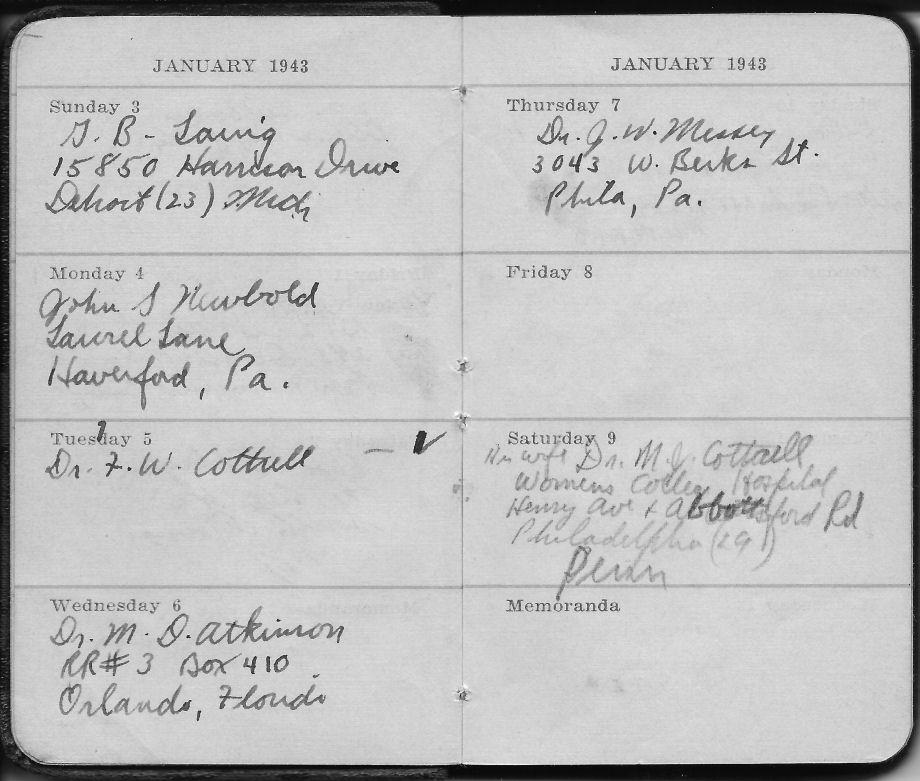 JANUARY 1943
Sunday 3
G. B - Laing
15850 Harrison Drive
Detroit (23) Mich
Monday 4
John S Newbold
Laurel Lane
Haverford, Pa.
Tuesday 5
Dr. F. W. Cottrell - ✓
Wednesday 6
Dr. M. D. Atkinson
RR# 3 Box 410
Orlando, Florida
JANUARY 1943
Thursday 7
Dr. J. W. Messey
3043 W. Berks St.
Phila, Pa.
Friday 8
Saturday 9
His wife Dr. M. J. Cottrell
Womens College Hospital
Henry Ave + Abbottsford Rd
Philadelphia (29)
Penn
Memoranda